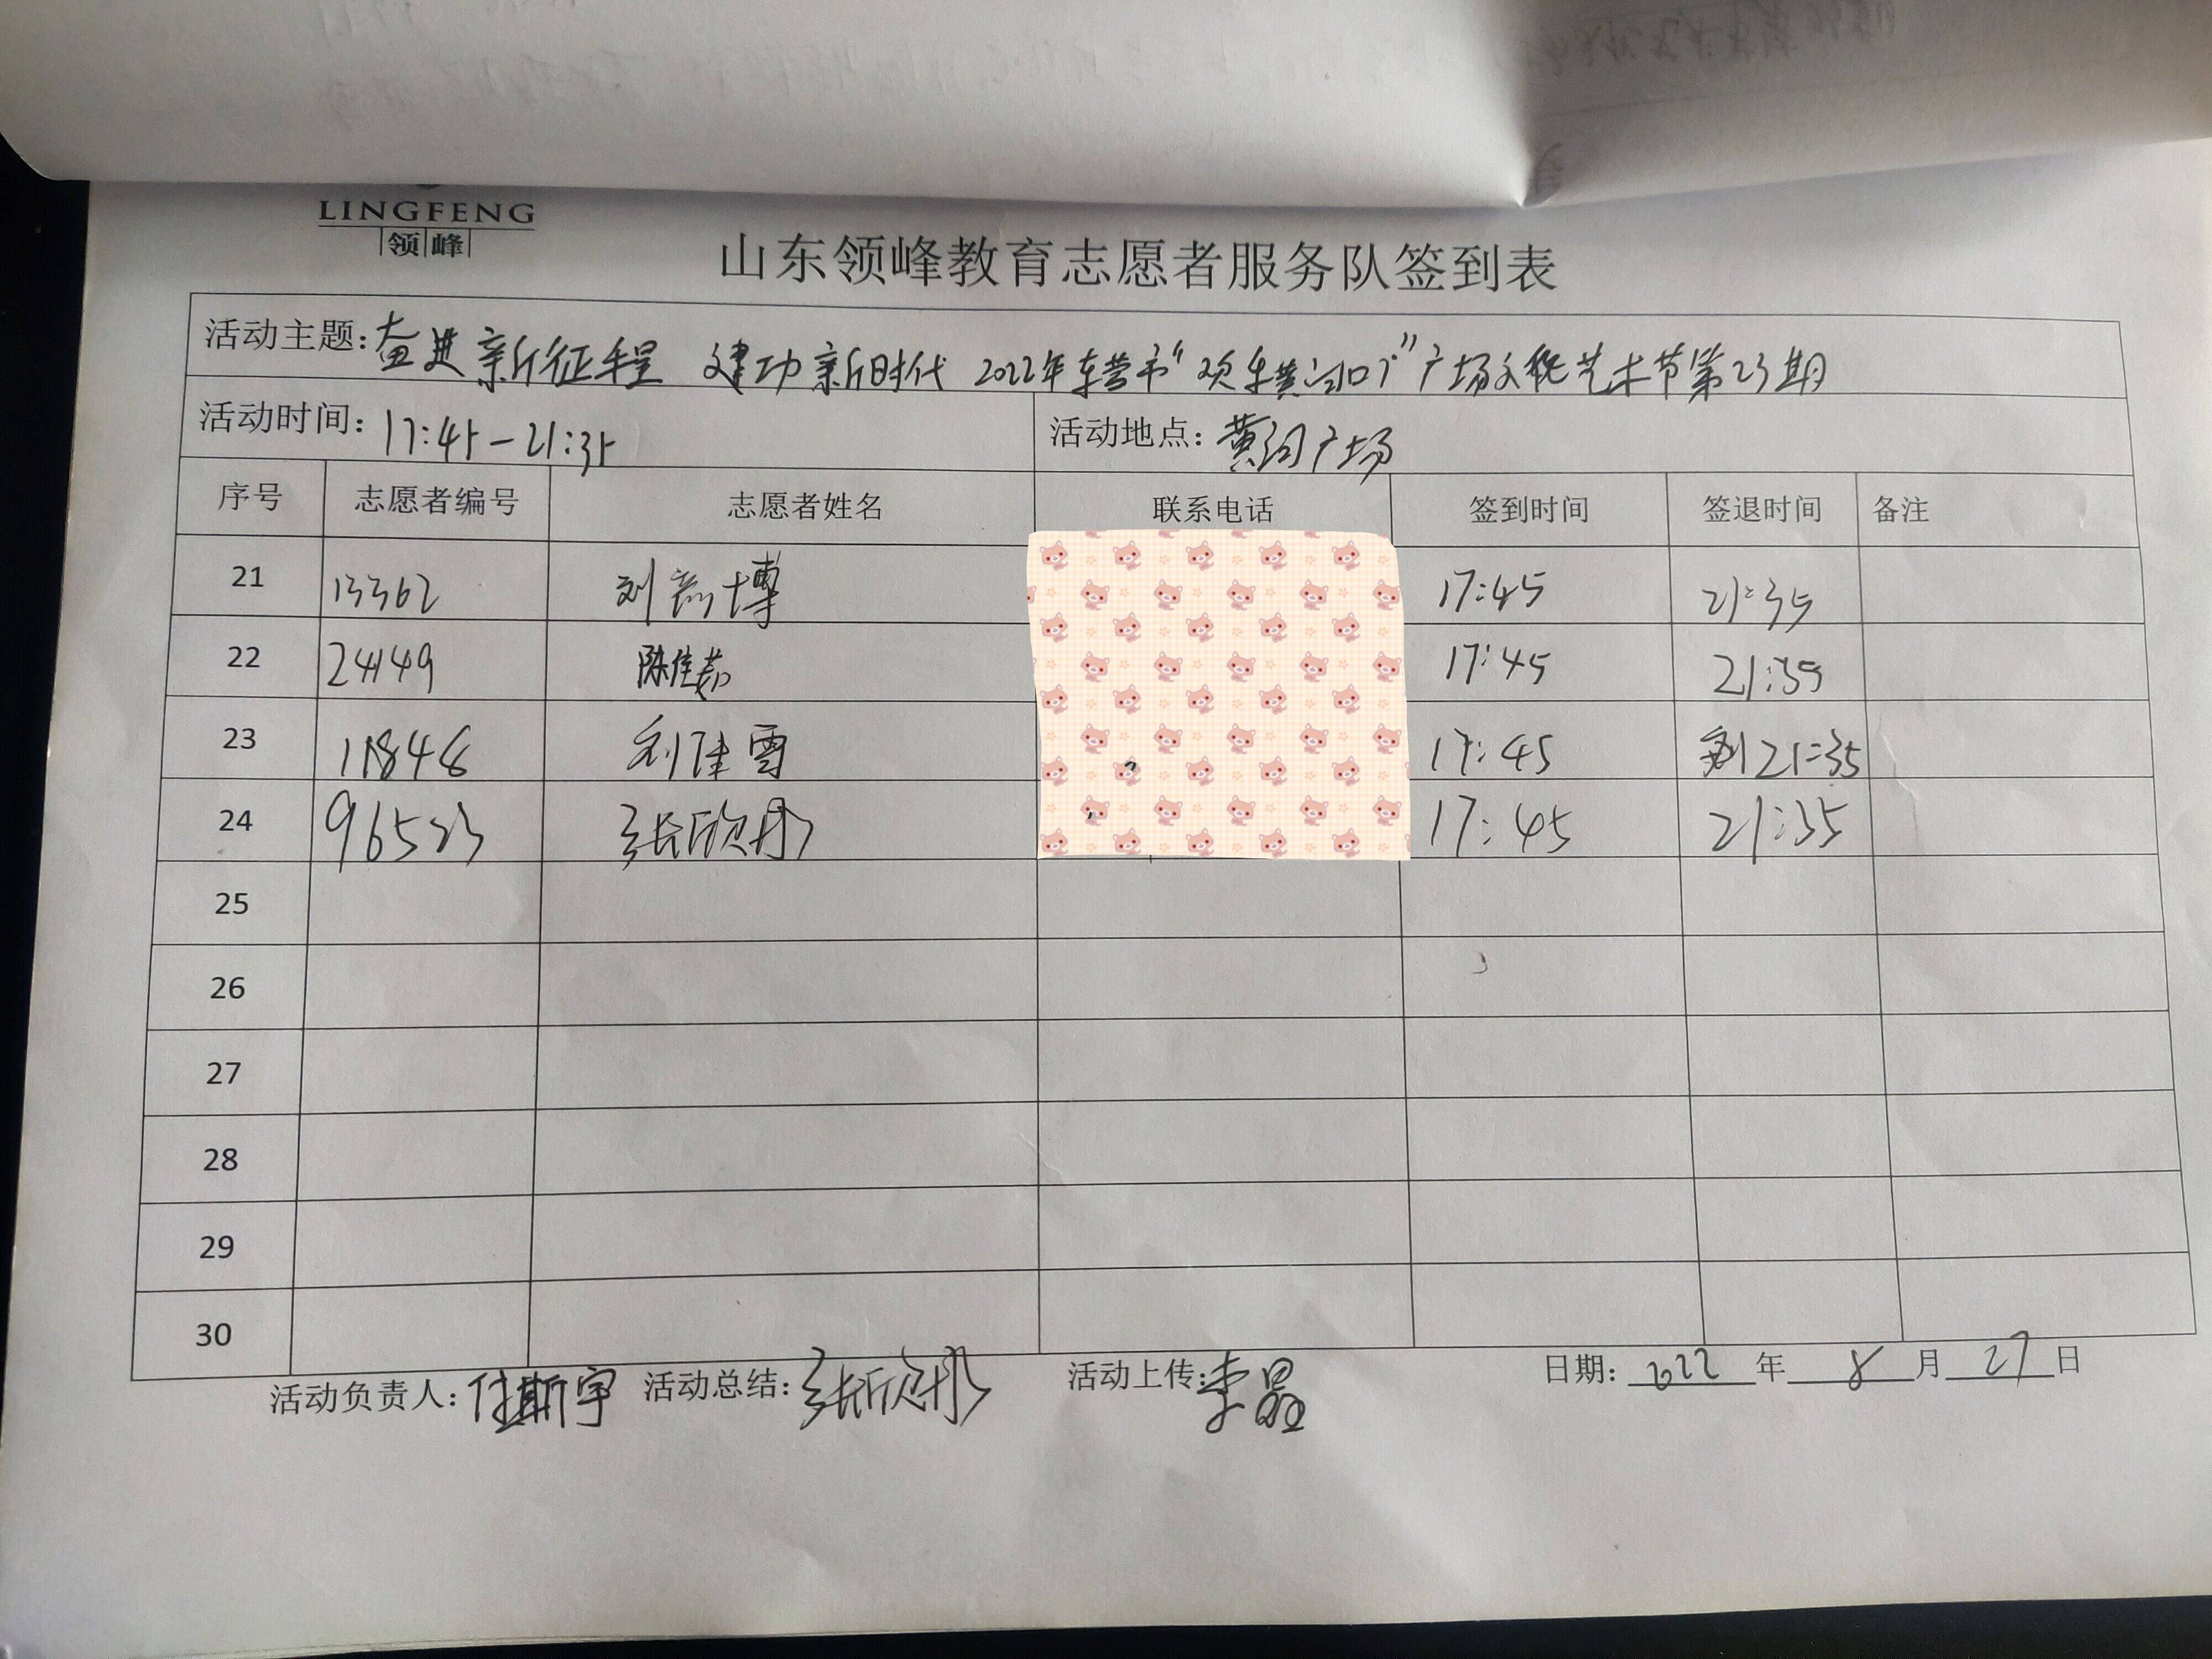 LINGFENG
领峰
山东领峰教育志愿者服务队签到表
活动主题: 奋进新征程 建功新时代 2022年东营市“欢乐黄河口”广场文化艺术节第23期
活动时间: 17:45-21:35 活动地点: 黄河广场
序号 志愿者编号 志愿者姓名 联系电话 签到时间 签退时间 备注
21 13362 刘彦博 17:45 21:35
22 24149 陈佳茹 17:45 21:35
23 11848 刘佳雪 17:45 21:35
24 96523 张欣彤 17:45 21:35
25
26
27
28
29
30
活动负责人: 付斯宇 活动总结: 张欣彤 活动上传: 李晶 日期: 2022 年 8 月 27 日